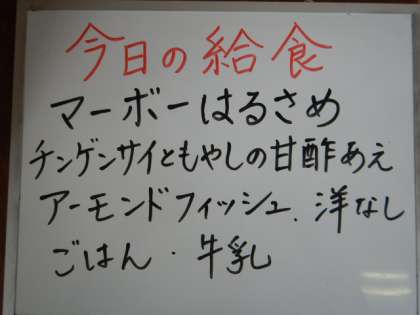 今日の給食
マーボーはるさめ
チンゲンサイともやしの甘酢あえ
アーモンドフィッシュ. 洋なし
ごはん・牛乳